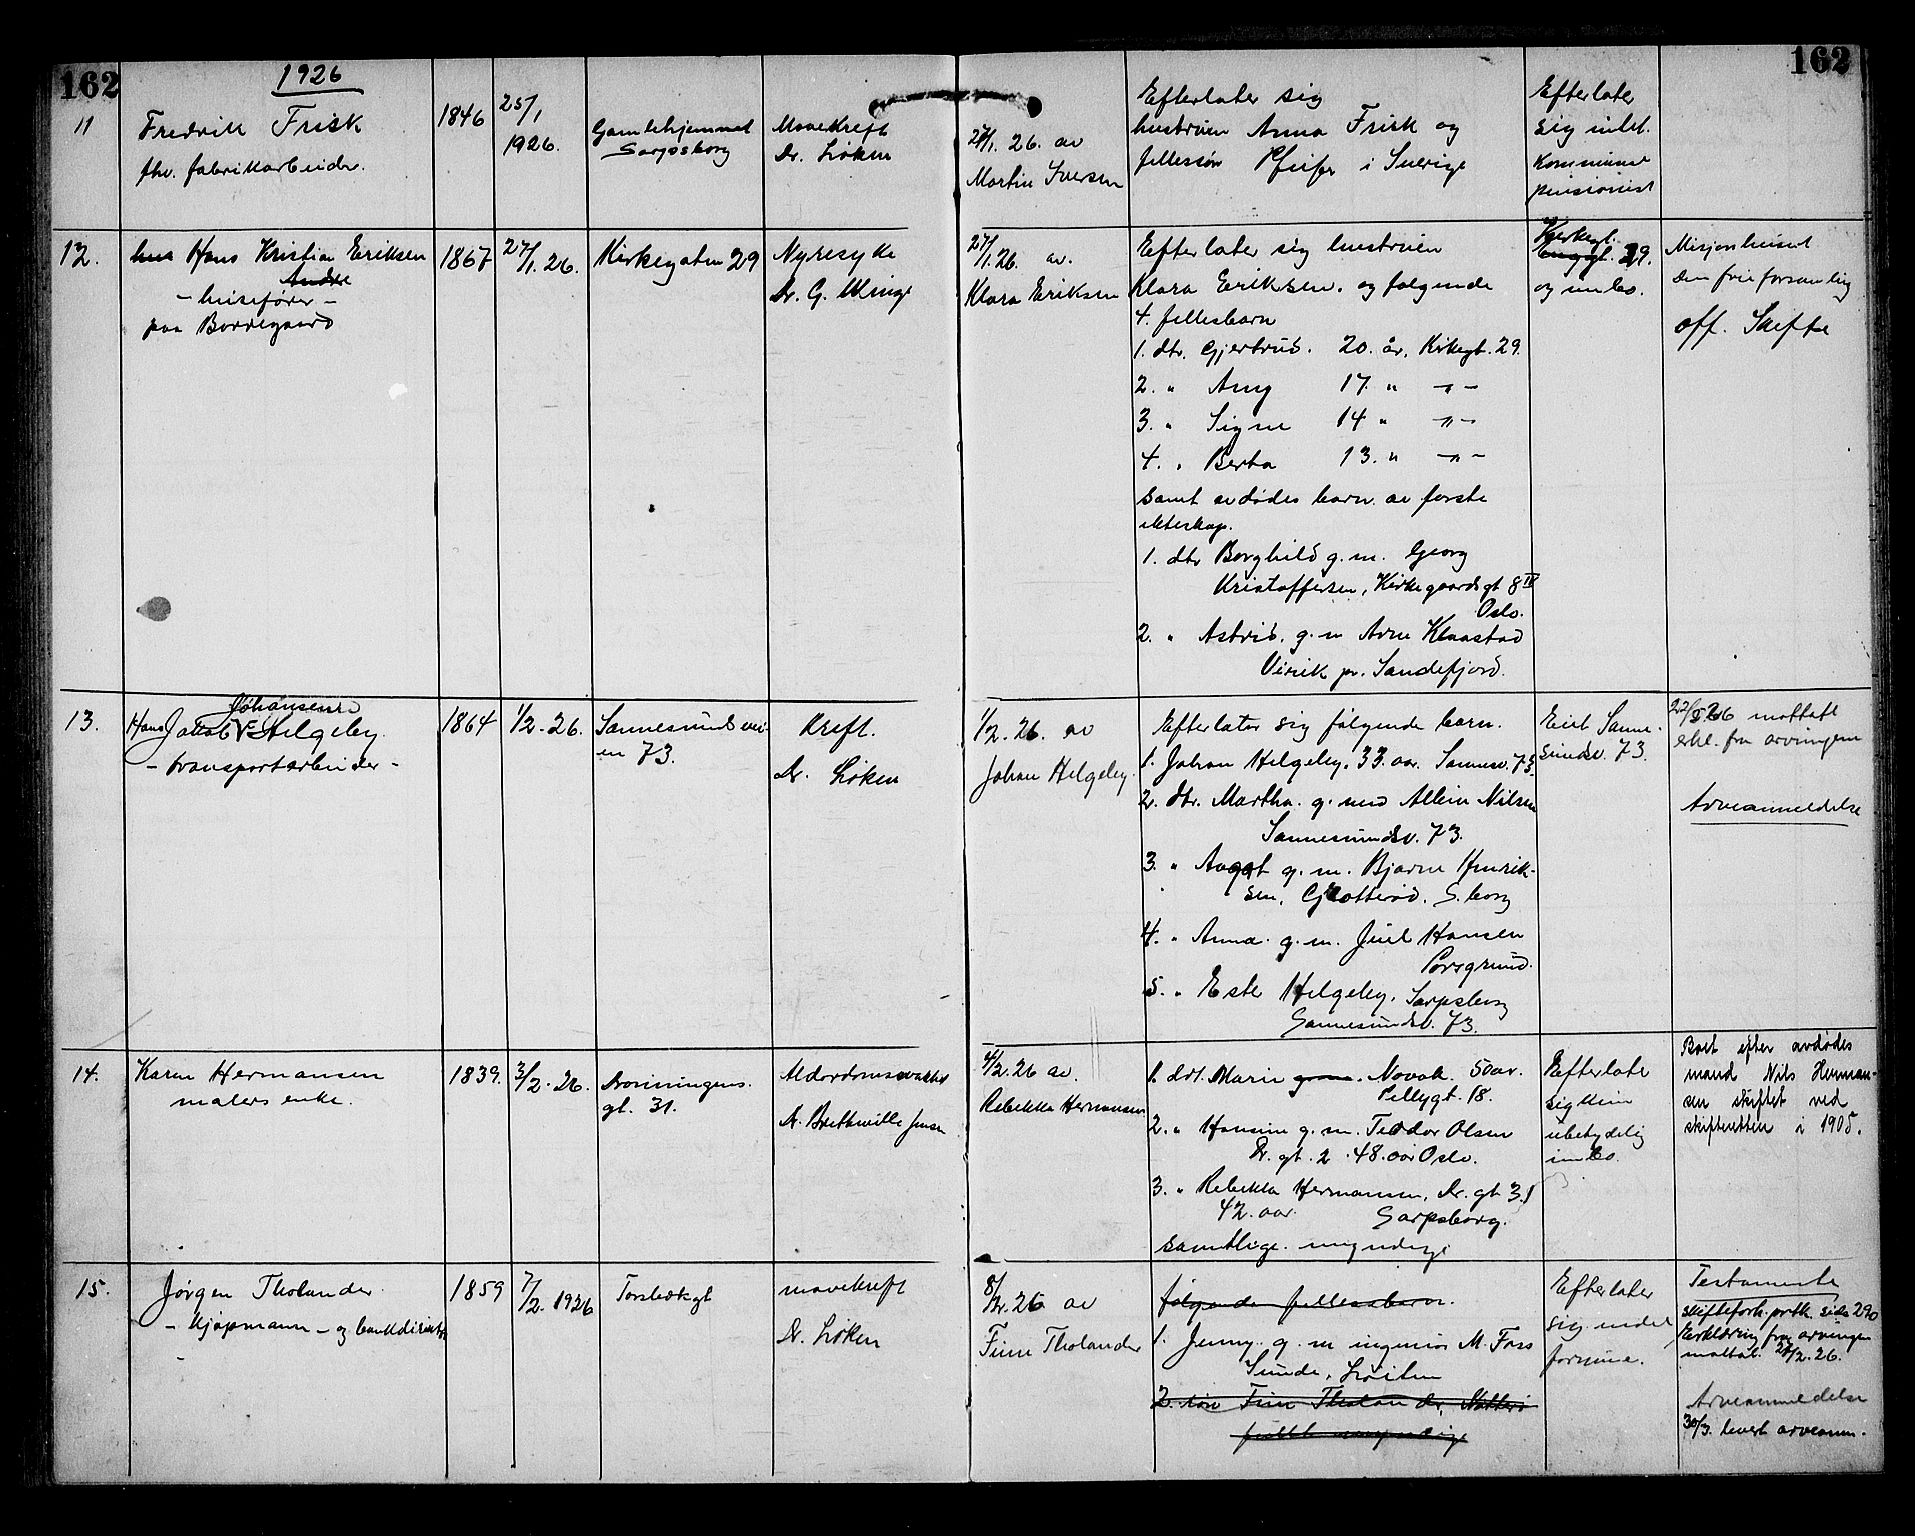 162
1926
162
11
Fredrik Frisk
fhv. fabrikkarbeider.
1846
25/1
1926.
Gamlehjemmet
Sarpsborg
Mavekreft
Dr. Løken
27/1. 26. av
Martin Iversen
Efterlater sig
hustruen Anna Frisk og
fellessøn Pfeifer i Sverige
Efterlater
sig intet.
Kommune
pensionist
12.
Hans Kristian Eriksen
Andre
- husefører -
paa Borregaard
1867
27/1. 26.
Kirkegaten 29
Nyresyke
Dr. G. Winge
27/1.26. av.
Klara Eriksen
Efterlater sig hustruen
Klara Eriksen. og følgende
4. fellesbarn
1. dtr. Gjertrud. 20. år, Kirkegt. 29.
2. " Amy 17 " - " -
3. " Signe 14 " - " -
4. " Berta 13. " - " -
samt avdødes barn av første
ekteskap.
1. dtr Borghild g.m. Georg
Kristoffersen, Kirkegaardsgt 8 IV
Oslo.
2. " Astrid. g.m Arne Klaastad
Virik pr. Sandefjord.
Kirkegt.
29.
og innbo.
Misjonhuset
den frie forsamling
off. Skifte
13.
Johansen
Hans Jakob Helgeby.
- transportarbeider -
1864
1/2. 26.
Sannesundsvei-
en 73.
Kreft.
Dr. Løken
1/2. 26. av
Johan Helgeby.
Efterlater sig følgende barn.
1. Johan Helgeby. 33. aar. Sannesv. 73.
2. dtr. Martha. g. med Allein Nilsen
Sannesundsv. 73.
3. " Aagot g. m. Bjarne Henrik-
sen, Grotterød. S.borg
4. " Anna. g. m. Juel Hansen
Porsgrund.
5. " Ester Helgeby. Sarpsborg
Sannesundsv. 73.
Eiet Sanne-
sundsv. 73.
22/5 26 mottatt
erkl. fra arvingene
Arveanmeldelse
14.
Karen Hermansen
malers enke.
1839.
3/2. 26.
Dronningens.
gt. 31.
Alderdomssvakhet
Dr. Brethville Jensen
4/2. 26 av.
Rebekka Hermansen
1. dtr. Marie Novak. 50 aar.
Pellygt. 18.
2. " Hansine g. m. Teodor Olsen
Dr. gt. 2. 48. aar Oslo.
3. " Rebekka Hermansen, Dr. gt 31
42. aar. Sarpsborg.
samtlige. myndige
Efterlate
sig kun
ubetydelig
innbo.
Boet efter avdødes
mand Nils Herman-
sen skiftet ved
skifteretten i 1905.
15.
Jørgen Tholander.
- Kjøpmann - og bankdirektør
1859
7/2. 1926
Torsbekkgt
mavekreft
Dr. Løken
8/2. 26 av
Finn Tholander
følgende fellesbarn.
1. Jenny. g. m ingeniør M. Foss
Sunde, Løiten
2. søn Finn Tholander, Nøtterø
fullt myndige
Efterlater
sig endel
formue.
Testamente
skifteforh. protk. side 290
Erklæring fra arvingen
mottat. 27/2. 26.
Arveanmeldelse
30/3. levert arveanm.